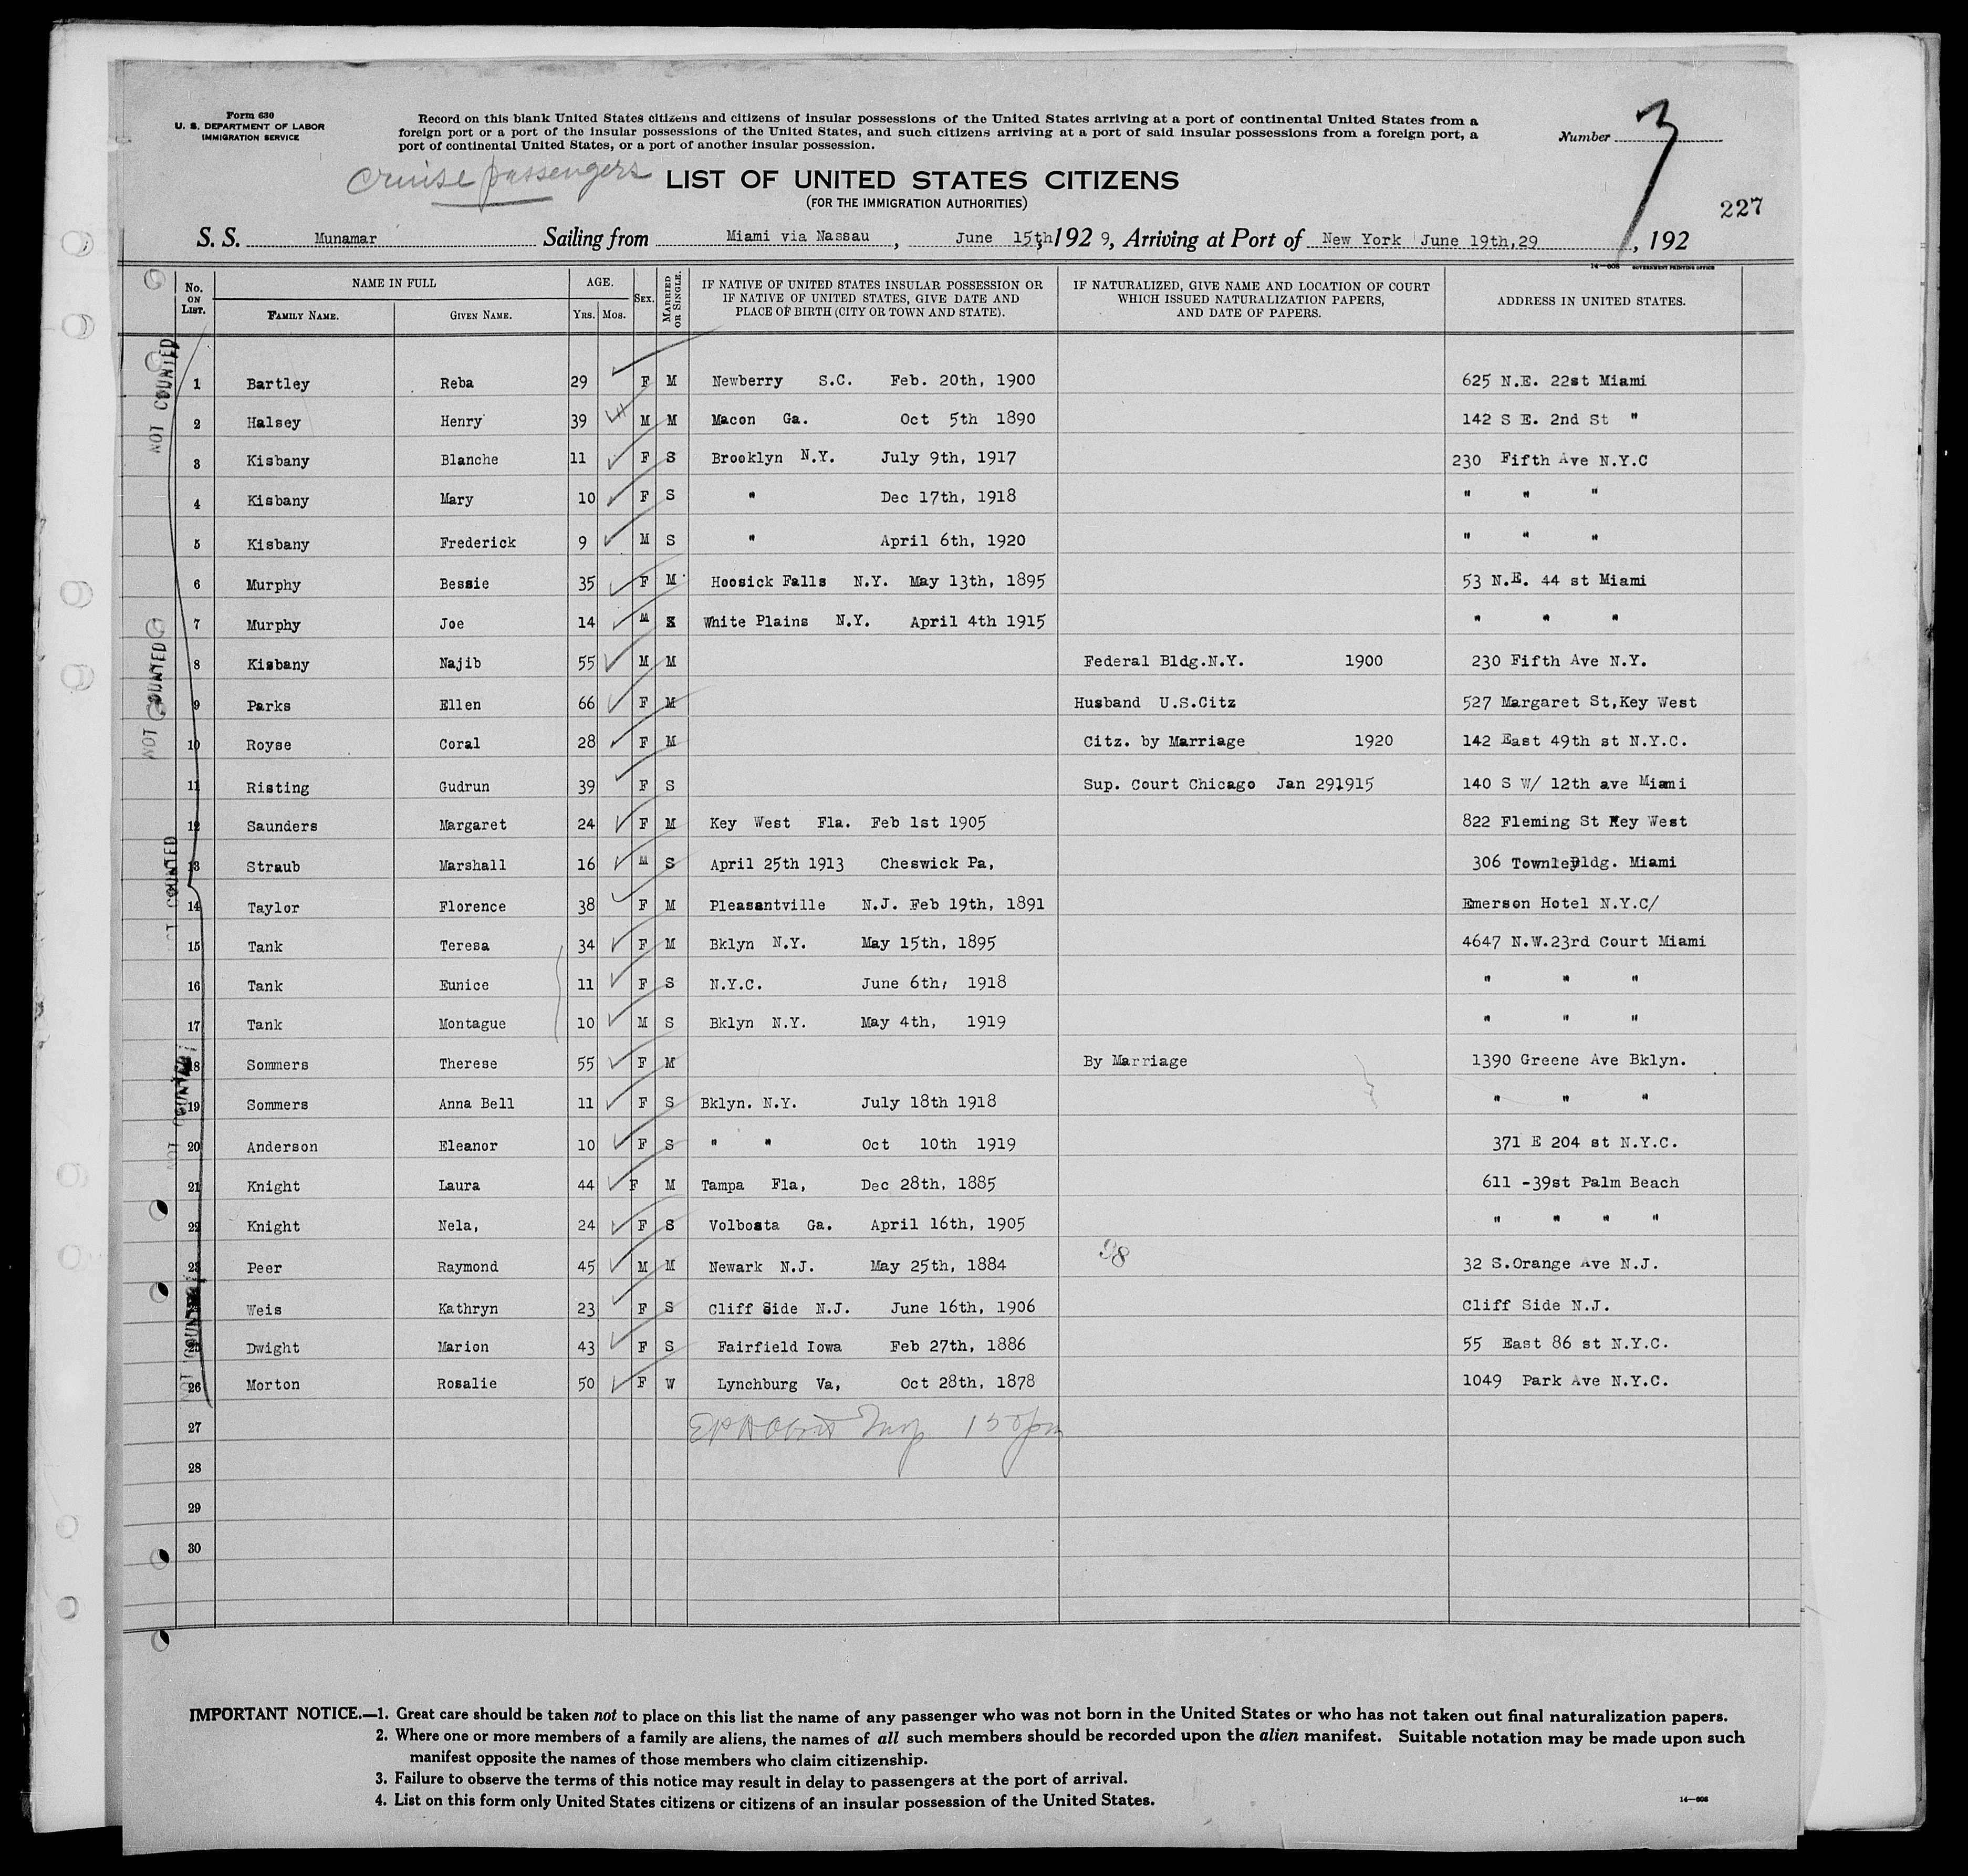 Form 630
U. S. DEPARTMENT OF LABOR
IMMIGRATION SERVICE
Record on this blank United States citizens and citizens of insular possessions of the United States arriving at a port of continental United States from a
foreign port or a port of the insular possessions of the United States, and such citizens arriving at a port of said insular possessions from a foreign port, a
port of continental United States, or a port of another insular possession.
Number 3
cruise passengers
LIST OF UNITED STATES CITIZENS
(FOR THE IMMIGRATION AUTHORITIES)
227
S. S. Munamar Sailing from Miami via Nassau, June 15th, 1929, Arriving at Port of New York June 19th,29, 192
14—608 GOVERNMENT PRINTING OFFICE
No. ON LIST. NAME IN FULL FAMILY NAME. GIVEN NAME. AGE. YRS. MOS. SEX. MARRIED OR SINGLE. IF NATIVE OF UNITED STATES INSULAR POSSESSION OR IF NATIVE OF UNITED STATES, GIVE DATE AND PLACE OF BIRTH (CITY OR TOWN AND STATE). IF NATURALIZED, GIVE NAME AND LOCATION OF COURT WHICH ISSUED NATURALIZATION PAPERS, AND DATE OF PAPERS. ADDRESS IN UNITED STATES.
NOT COUNTED
1 Bartley Reba 29 F M Newberry S.C. Feb. 20th, 1900 625 N.E. 22st Miami
2 Halsey Henry 39 M M Macon Ga. Oct 5th 1890 142 S E. 2nd St "
3 Kisbany Blanche 11 F S Brooklyn N.Y. July 9th, 1917 230 Fifth Ave N.Y.C
4 Kisbany Mary 10 F S " Dec 17th, 1918 " " "
5 Kisbany Frederick 9 M S " April 6th, 1920 " " "
6 Murphy Bessie 35 F M Hoosick Falls N.Y. May 13th, 1895 53 N.E. 44 st Miami
NOT COUNTED
7 Murphy Joe 14 M S White Plains N.Y. April 4th 1915 " " "
8 Kisbany Najib 55 M M Federal Bldg.N.Y. 1900 230 Fifth Ave N.Y.
9 Parks Ellen 66 F M Husband U.S.Citz 527 Margaret St,Key West
10 Royse Coral 28 F M Citz. by Marriage 1920 142 East 49th st N.Y.C.
11 Risting Gudrun 39 F S Sup. Court Chicago Jan 291915 140 S W/ 12th ave Miami
NOT COUNTED
12 Saunders Margaret 24 F M Key West Fla. Feb 1st 1905 822 Fleming St Key West
13 Straub Marshall 16 M S April 25th 1913 Cheswick Pa, 306 Townley Bldg. Miami
14 Taylor Florence 38 F M Pleasantville N.J. Feb 19th, 1891 Emerson Hotel N.Y.C/
15 Tank Teresa 34 F M Bklyn N.Y. May 15th, 1895 4647 N.W.23rd Court Miami
16 Tank Eunice 11 F S N.Y.C. June 6th, 1918 " " "
17 Tank Montague 10 M S Bklyn N.Y. May 4th, 1919 " " "
NOT COUNTED
18 Sommers Therese 55 F M By Marriage 1390 Greene Ave Bklyn.
19 Sommers Anna Bell 11 F S Bklyn. N.Y. July 18th 1918 " " "
20 Anderson Eleanor 10 F S " " Oct 10th 1919 371 E 204 st N.Y.C.
21 Knight Laura 44 F M Tampa Fla, Dec 28th, 1885 611 -39st Palm Beach
22 Knight Nela, 24 F S Volbosta Ga. April 16th, 1905 " " " "
98
23 Peer Raymond 45 M M Newark N.J. May 25th, 1884 32 S.Orange Ave N.J.
NOT COUNTED
Weis Kathryn 23 F S Cliff Side N.J. June 16th, 1906 Cliff Side N.J.
25 Dwight Marion 43 F S Fairfield Iowa Feb 27th, 1886 55 East 86 st N.Y.C.
26 Morton Rosalie 50 F W Lynchburg Va, Oct 28th, 1878 1049 Park Ave N.Y.C.
27 Insp 150pm
28
29
30
IMPORTANT NOTICE.—1. Great care should be taken not to place on this list the name of any passenger who was not born in the United States or who has not taken out final naturalization papers.
2. Where one or more members of a family are aliens, the names of all such members should be recorded upon the alien manifest. Suitable notation may be made upon such
manifest opposite the names of those members who claim citizenship.
3. Failure to observe the terms of this notice may result in delay to passengers at the port of arrival.
4. List on this form only United States citizens or citizens of an insular possession of the United States.
14—608